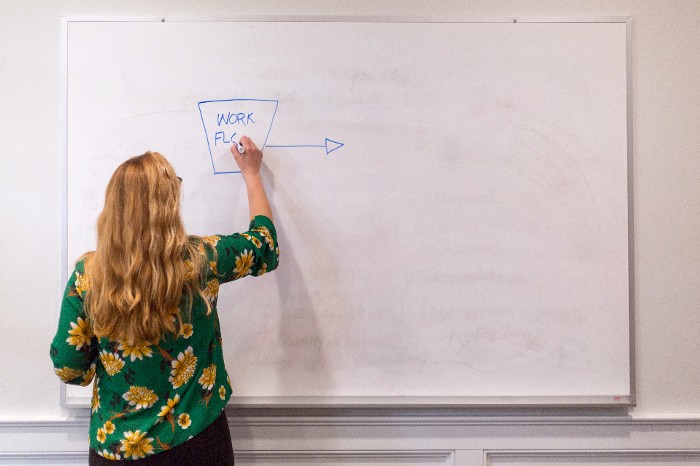 WORK
FLO